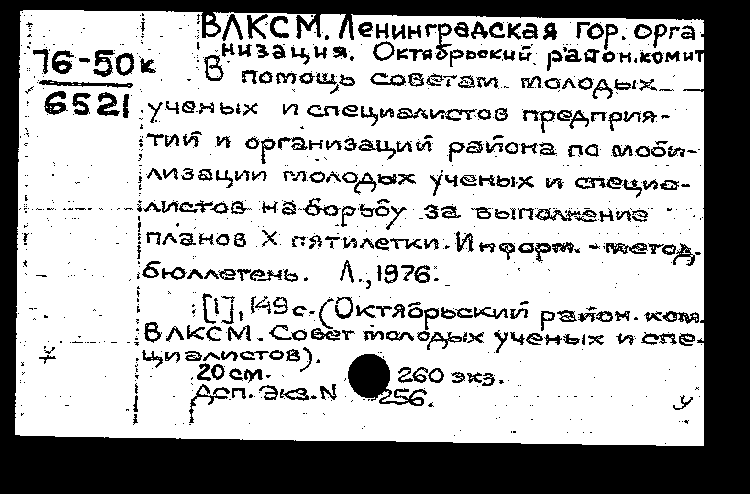 ВЛКСМ. Ленинградская гор. орга-
низация. Октябрьский район. комит
76-50к
6521
В помощь советам молодых
ученых и специалистов предприя-
тий и организаций района по моби-
лизации молодых ученых и специа-
листов на борьбу за выполнение
планов X пятилетки. Информ.-метод.
бюллетень. Л., 1976.
[1], 149 с. (Октябрьский район. ком.
ВЛКСМ. Совет молодых ученых и спе-
циалистов).
20 см. 260 экз.
Доп. экз. N 256.
у